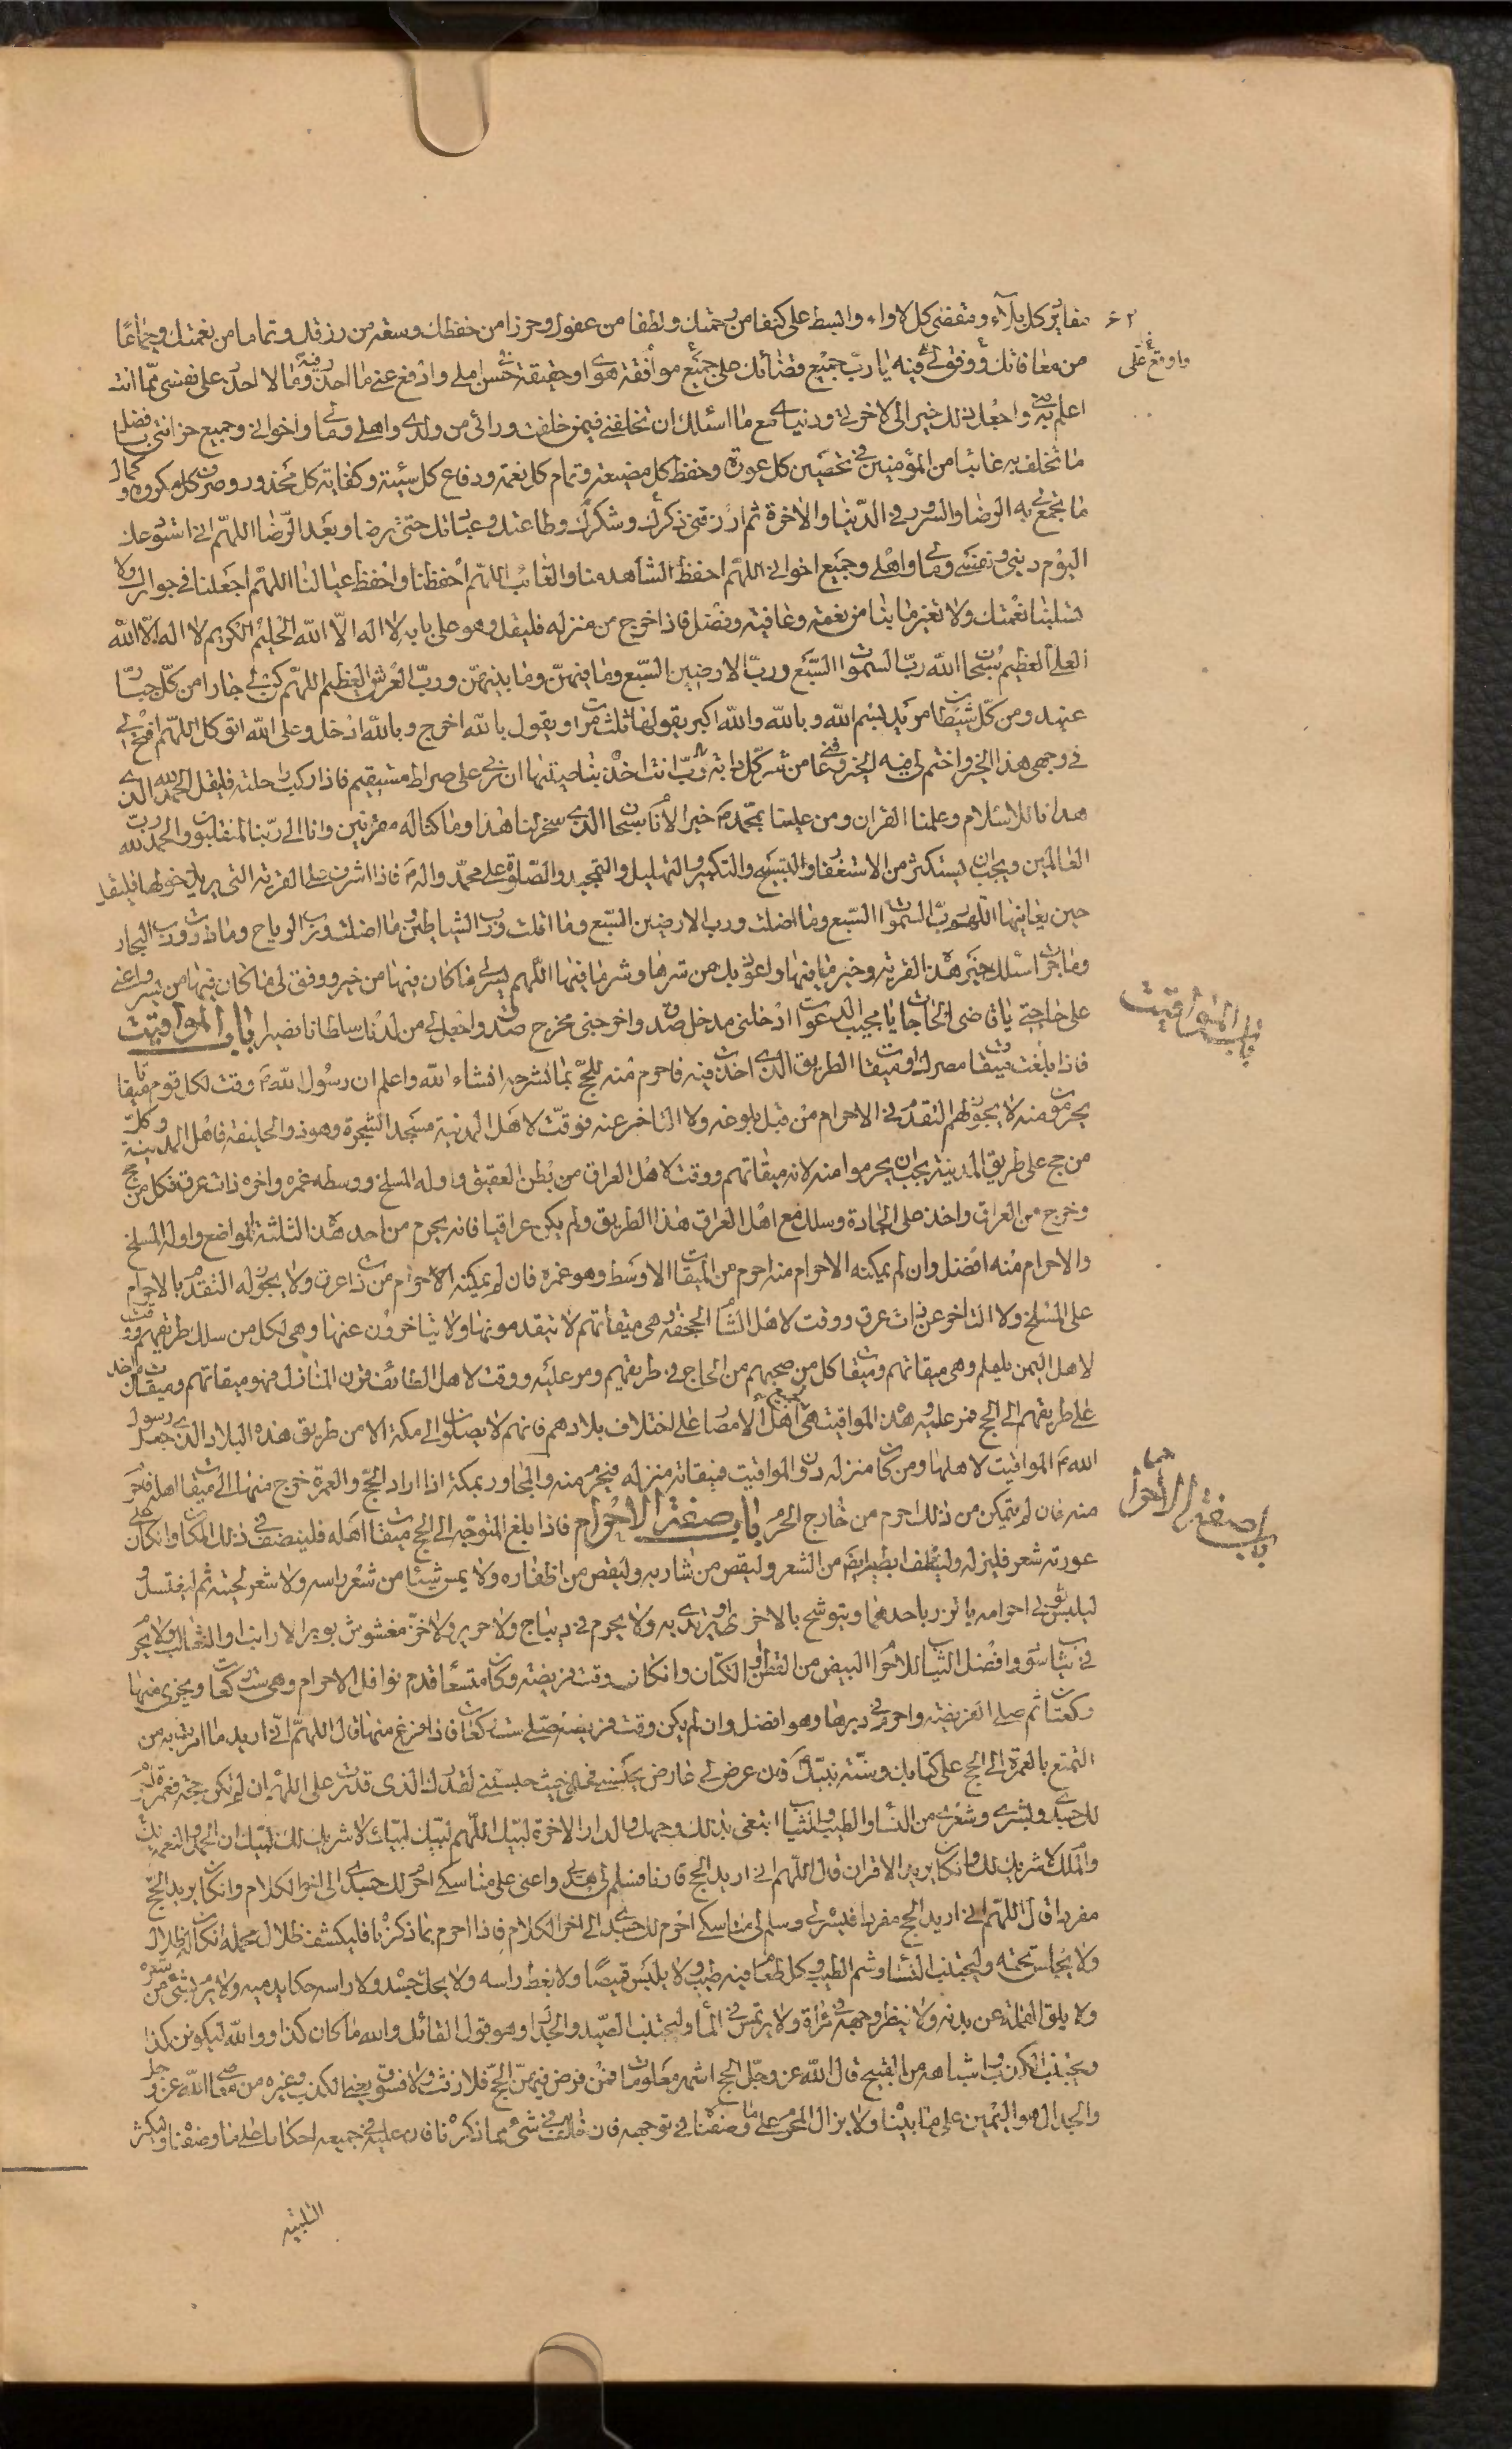 ٦٢
مقادير كل بلاء وتقضى كل لاواء وابسط على كنفا من رحمتك ولطفا من عفوك وحرزا من حفظك وسعة من رزقك وتماما من نعمتك وجماعا
من معافاتك ووفق لي فيه يا رب جميع قضائك على جميع موافقة هواى وحقيقة حسن املي وادفع عني ما احذر وما لا احذر على نفسي مما انت
اعلم به مني واجعل ذلك خيرا لي لاخرتي ودنياي مع ما اسئلك ان تخلفني فيمن خلفت ورائى من ولدي واهلي ومالي واخواني وجميع حزانتي بافضل
ما تخلف به غائبا من المؤمنين في تحصين كل عورة وحفظ كل مضيعة وتمام كل نعمة ودفاع كل سيئة وكفاية كل محذور وصرف كل مكروه وكمال
ما تجمع لي به الرضا والسرور في الدنيا والاخرة ثم ارزقني ذكرك وشكرك وطاعتك وعبادتك حتى ترضا وبعد الرضا اللهم اني استودعك
اليوم ديني ونفسي ومالي واهلي وجميع اخواني اللهم احفظ الشاهد منا والغائب اللهم احفظنا واحفظ عيالنا اللهم اجعلنا في جوارك ولا
تسلبنا نعمتك ولا تغير ما بنا من نعمة وعافية وفضل فاذا خرج من منزله فليقل وهو على بابه لا اله الا الله الحليم الكريم لا اله الا الله
العلي العظيم سبحان الله رب السموات السبع ورب الارضين السبع وما فيهن وما بينهن ورب العرش العظيم اللهم كن لي جارا من كل جبار
عنيد ومن كل شيطان مريد بسم الله وبالله والله اكبر يقولها ثلث مرات او يقول بالله اخرج وبالله ادخل وعلى الله اتوكل اللهم افتح لي
في وجهي هذا الخير واختم لي فيه بالخير وقني عا من شر كل دابة رب انت اخذ بناصيتها ان ربي على صراط مستقيم فاذا ركب راحلته فليقل الحمد لله الذي
هدانا للاسلام وعلمنا القران ومن علينا بمحمد ص خير الانام سبحان الذي سخر لنا هذا وما كنا له مقرنين وانا الى ربنا لمنقلبون والحمد لله رب
العالمين ويجب ان يستكثر من الاستغفار والتسبيح والتكبير والتهليل والتمجيد والصلوة على محمد واله ص فاذا اشرف على القرية التي يريد دخولها فليقل
حين يعاينها اللهم رب السموات السبع وما اضلت ورب الارضين السبع وما اقلت ورب الشياطين وما اضلت ورب الرياح وما ذرت ورب البحار
وما جرت اسئلك خير هذه القرية وخير ما فيها واعوذ بك من شرها وشر ما فيها اللهم يسر لي ما كان فيها من خير ووفق لي ما كان فيها من يسر واعني
على حاجتي يا قاضي الحاجات يا مجيب الدعوات ادخلني مدخل صدق واخرجني مخرج صدق واجعل لي من لدنك سلطانا نصيرا باب المواقيت
فاذا بلغت ميقات مصرك او ميقات الطريق الذي اخذت فيه فاحرم منه للحج بما نشرحه انشاء الله واعلم ان رسول الله ص وقت لكل قوم ميقاتا
يحرمون منه لا يجوز لهم التقدم في الاحرام من قبل بلوغه ولا التاخر عنه فوقت لاهل المدينة مسجد الشجرة وهو ذو الحليفة فاهل المدينة وكل
من حج على طريق المدينة يجب ان يحرموا منه لانه ميقاتهم ووقت لاهل العراق من بطن العقيق واوله المسلخ ووسطه غمرة واخره ذات عرق فكل من حج
وخرج من العراق واخذ على الجادة وسلك مع اهل العراق هذا الطريق ولم يكن عراقيا فانه يحرم من احد هذه الثلثة المواضع واوله المسلخ
والاحرام منه افضل وان لم يمكنه الاحرام منه احرم من الميقات الاوسط وهو غمرة فان لم يمكنه الاحرام من ذات عرق ولا يجوز له التقدم بالاحرام
على المسلخ ولا التاخر عن ذات عرق ووقت لاهل الشام الجحفة وهي ميقاتهم لا يتقدمونها ولا يتاخرون عنها وهي لكل من سلك طريقهم ووقت
لاهل اليمن يلملم وهي ميقاتهم وميقات كل من صحبهم من الحاج في طريقهم ومر عليه ووقت لاهل الطائف قرن المنازل فهو ميقاتهم وميقات من اخذ
على طريقهم الى الحج فمر عليه وهذه المواقيت هي لجميع اهل الامصار على اختلاف بلادهم فانهم لا يصلون الى مكة الا من طريق هذه البلاد الذي جعل رسول
الله ص المواقيت لاهلها ومن كان منزله دون المواقيت فميقاته منزله فيحرم منه والمجاور بمكة اذا اراد الحج والعمرة خرج منها الى ميقات اهله فيحرم
منه فان لم يتمكن من ذلك احرم من خارج الحرم باب صفة الاحرام فاذا بلغ المتوجه الى الحج ميقات اهله فلينتف في ذلك المكان وان كان على
عورته شعر فليزله ولينظف ابطيه ايضا من الشعر وليقص من شاربه وليقص من اظفاره ولا يمس شيئا من شعر راسه ولا شعر لحيته ثم ليغتسل و
ليلبس ثوبي احرامه ياتزر باحدهما ويتوشح بالاخر او يرتدي به ولا يحرم في ديباج ولا حرير ولا خز مغشوش بوبر الارانب او الثعالب ولا يحرم
في ثياب سود وافضل الثياب للاحرام البيض من القطن او الكتان وان كان وقت فريضة وكان متسعا قدم نوافل الاحرام وهي ست ركعات ويجزى منها
ركعتان ثم صلى الفريضة واحرم في دبرها وهو افضل وان لم يكن وقت فريضة صلى ست ركعات فاذا فرغ منها قال اللهم اني اريد ما امرت به من
التمتع بالعمرة الى الحج على كتابك وسنة نبيك ص فان عرض لي عارض يحبسني فحلني حيث حبستني لقدرك الذي قدرت على اللهم ان لم تكن حجة فعمرة احرم
لك جسدي وبشري وشعري من النساء والطيب والثياب ابتغي بذلك وجهك والدار الاخرة لبيك اللهم لبيك لبيك لا شريك لك لبيك ان الحمد والنعمة لك
والملك لا شريك لك وان كان يريد الاقران قال اللهم اني اريد الحج قارنا فسلم لي هديي واعني على مناسكي احرم لك جسدي الى اخر الكلام وان كان يريد الحج
مفردا قال اللهم اني اريد الحج مفردا فيسره لي وسلم لي مناسكي احرم لك جسدي الى اخر الكلام فاذا احرم بما ذكرنا فليكشف ظلال محمله ان كان له ظلال
ولا يجلس تحته وليجتنب النساء وشم الطيب وكل طعام فيه طيب ولا يلبس قميصا ولا يغط راسه ولا يحك جسده ولا راسه حكا يدميه ولا يرم بشيء من شعره
ولا يلق القملة عن بدنه ولا ينظر وجهه في مرآة ولا يرتمس في الماء وليجتنب الصيد والجدال وهو قول القائل والله ما كان كذا ووالله ليكونن كذا
ويجتنب الكذب واشباهه من القبيح قال الله عز وجل الحج اشهر معلومات فمن فرض فيهن الحج فلا رفث ولا فسوق يعني الكذب وغيره من معاصي الله عز وجل
والجدال هو اليمين على ما بيناه ولا يزال المحرم على ما وصفناه في توجهه فان خالف في شيء مما ذكرنا فان عليه في جميعه احكاما على ما وصفناه وليكثر
التلبية
واوقع على
باب المواقيت
باب صفة الاحرام